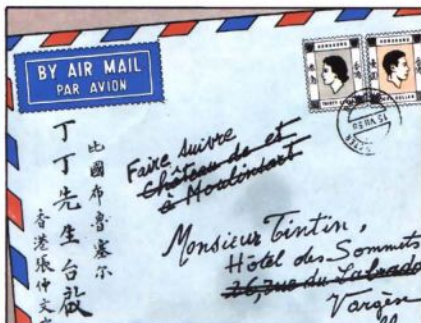 BY AIR MAIL
PAR AVION
HONGKONG
HONGKONG
比國布魯塞尔
丁丁先生台啟
香港張仲文
Faire suivre
Château de et
à Moulinsart
Monsieur Tintin,
Hôtel des Sommets
26, rue du Labrado
Vargèse